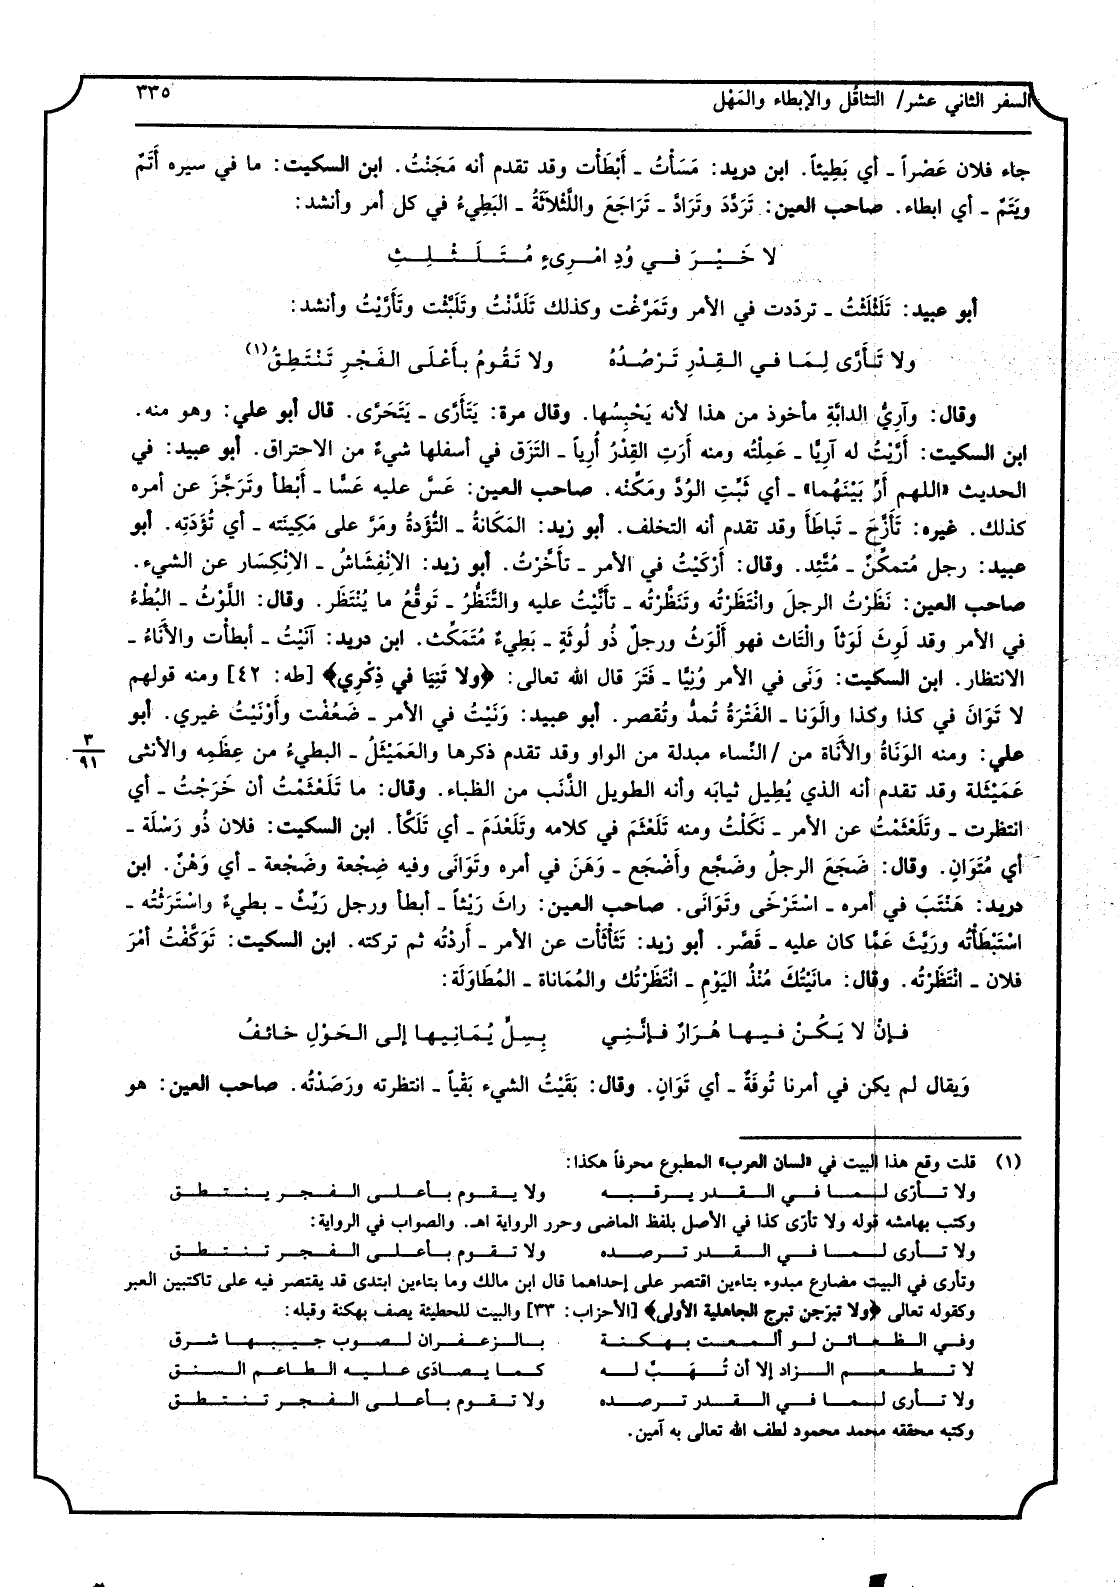 السفر الثاني عشر/ التثاقُل والإبطاء والمَهْل
٣٣٥
جاء فلان عَصْراً ـ أي بَطِيئاً. ابن دريد: مَسَأْتُ ـ أَبْطَأْت وقد تقدم أنه مَجَنْتُ. ابن السكيت: ما في سيره أَتَمٌ
ويَتَمٌ ـ أي ابطاء. صاحب العين: تَرَدَّدَ وتَرَادَّ ـ تَرَاجَعَ واللَّثْلاثَةُ ـ البَطِيءُ في كل أمر وأنشد:
لا خَـيْـرَ فـي وُدِ امْـرِىءٍ مُـتَـلَـثْـلِـثِ
أبو عبيد: تَلَثْلَثْتُ ـ تردّدت في الأمر وتَمَرَّغْت وكذلك تَلَدَّنْتُ وتَلَبَّثْت وتَأَرَّيْتُ وأنشد:
ولا تَـأَرَّى لِـمَـا فـي الـقِـدْرِ تَـرْصُـدُهُ ولا تَـقُـومُ بـأَعْـلَـى الـفَـجْـرِ تَـنْـتَـطِـقُ(١)
وقال: وآرِيُّ الدابَّةِ مأخوذ من هذا لأنه يَحْبِسُها. وقال مرة: يَتَأَرَّى ـ يَتَحَرَّى. قال أبو علي: وهو منه.
ابن السكيت: أَرَّيْتُ له آرِيًّا ـ عَمِلْتُه ومنه أَرَتِ القِدْرُ أَرِياً ـ التَزَق في أسفلها شيءٌ من الاحتراق. أبو عبيد: في
الحديث «اللهم أَرِّ بَيْنَهُما» ـ أي ثَبِّتِ الوُدَّ ومَكِّنْه. صاحب العين: عَسَّ عليه عَسًّا ـ أَبْطأ وتَرَجَّزَ عن أمره
كذلك. غيره: تَأَزَّحَ ـ تَباطَأَ وقد تقدم أنه التخلف. أبو زيد: المَكَانَةُ ـ التُّؤَدةُ ومَرَّ على مَكِينَته ـ أي تُؤَدَتِه. أبو
عبيد: رجل مُتمكِّنٌ ـ مُتَّئِد. وقال: أَرْكَيْتُ في الأمر ـ تأخَّرْتُ. أبو زيد: الانْفِشَاشُ ـ الانْكِسَار عن الشيء.
صاحب العين: نَظَرْتُ الرجلَ وانْتَظَرْتُه وتَنَظَّرْتُه ـ تأنَّيْتُ عليه والتَّنَظُّرُ ـ تَوقُّعُ ما يُنْتَظَر. وقال: اللَّوْثُ ـ البُطْءُ
في الأمر وقد لَوِثَ لَوَثاً والْتَاث فهو أَلْوَثُ ورجلٌ ذو لُوثَةٍ ـ بَطِيءٌ مُتَمَكِّث. ابن دريد: آنَيْتُ ـ أبطأْت والأَنَاءُ ـ
الانتظار. ابن السكيت: وَنَى في الأمر وُنِيًّا ـ فَتَرَ قال الله تعالى: ﴿ولا تَنِيَا في ذِكْرِي﴾ [طه: ٤٢] ومنه قولهم
لا تَوَانَ في كذا وكذا والوَنا ـ الفَتْرَةُ تُمدُّ وتُقصر. أبو عبيد: وَنَيْتُ في الأمر ـ ضَعُفْت وأَوْنَيْتُ غيري. أبو
٣
٩١
علي: ومنه الوَنَاةُ والأَنَاة من /النِّساء مبدلة من الواو وقد تقدم ذكرها والعَمَيْثَلُ ـ البطيءُ من عِظَمِه والأنثى
عَمَيْثَلة وقد تقدم أنه الذي يُطِيل ثيابَه وأنه الطويل الذَّنَب من الظباء. وقال: ما تَلَعْثَمْتُ أن خَرَجْتُ ـ أي
انتظرت ـ وتَلَعْثَمْتُ عن الأمر ـ نَكَلْتُ ومنه تَلَعْثَمَ في كلامه وتَلَعْذَمَ ـ أي تَلَكَّأ. ابن السكيت: فلان ذُو رَسْلَة ـ
أي مُتَوَانٍ. وقال: ضَجَعَ الرجلُ وضَجَّع وأَضْجَع ـ وَهَنَ في أمره وتَوَانَى وفيه ضِجْعة وضَجْعة ـ أي وَهْنٌ. ابن
دريد: هَنْتَبَ في أمره ـ اسْتَرْخَى وتَوَانَى. صاحب العين: راثَ رَيْثاً ـ أبطأ ورجل رَيِّثٌ ـ بطيءٌ واسْتَرَثْتُه ـ
اسْتَبْطَأْتُه ورَيَّثَ عَمَّا كان عليه ـ قَصَّر. أبو زيد: تَثَأْثَأْت عن الأمر ـ أَردْتُه ثم تركته. ابن السكيت: تَوَكَّفْتُ أمْرَ
فلان ـ انْتَظَرْتُه. وقال: مانَيْتُكَ مُنْذُ اليَوْمِ ـ انْتَظَرْتُك والمُمَاناة ـ المُطَاوَلَة:
فـإنْ لا يَـكُـنْ فـيـهـا هُـرَارٌ فـإنَّـنِـي بِـسِـلٍّ يُـمَـانِـيـهـا إلـى الـحَـوْلِ خـائـفُ
وَيقال لم يكن في أمرنا تُوفَةٌ ـ أي تَوَانٍ. وقال: بَقَيْتُ الشيء بَقْياً ـ انتظرته ورَصَدْتُه. صاحب العين: هو
(١) قلت وقع هذا البيت في «لسان العرب» المطبوع محرفاً هكذا:
ولا تـأرّى لـمـا فـي الـقـدر يـرقـبـه ولا يـقـوم بـأعـلـى الـفـجـر يـنـتـطـق
وكتب بهامشه قوله ولا تأرّى كذا في الأصل بلفظ الماضى وحرر الرواية اهـ. والصواب في الرواية:
ولا تـأرى لـمـا فـي الـقـدر تـرصـده ولا تـقـوم بـأعـلـى الـفـجـر تـنـتـطـق
وتأرى في البيت مضارع مبدوء بتاءين اقتصر على إحداهما قال ابن مالك وما بتاءين ابتدى قد يقتصر فيه على تاكتبين العبر
وكقوله تعالى ﴿ولا تبرّجن تبرج الجاهلية الأولى﴾ [الأحزاب: ٣٣] والبيت للحطيئة يصف بهكنة وقبله:
وفـي الـظـعـائـن لـو ألـمـعـت بـهـكـنـة بـالـزعـفـران لـصـوب جـيـبـهـا شـرق
لا تـطـعـم الـزاد إلا أن تُـهَـبَّ لـه كـمـا يـصـادَى عـلـيـه الـطـاعـم الـسـنـق
ولا تـأرى لـمـا فـي الـقـدر تـرصـده ولا تـقـوم بـأعـلـى الـفـجـر تـنـتـطـق
وكتبه محققه محمد محمود لطف الله تعالى به آمين.